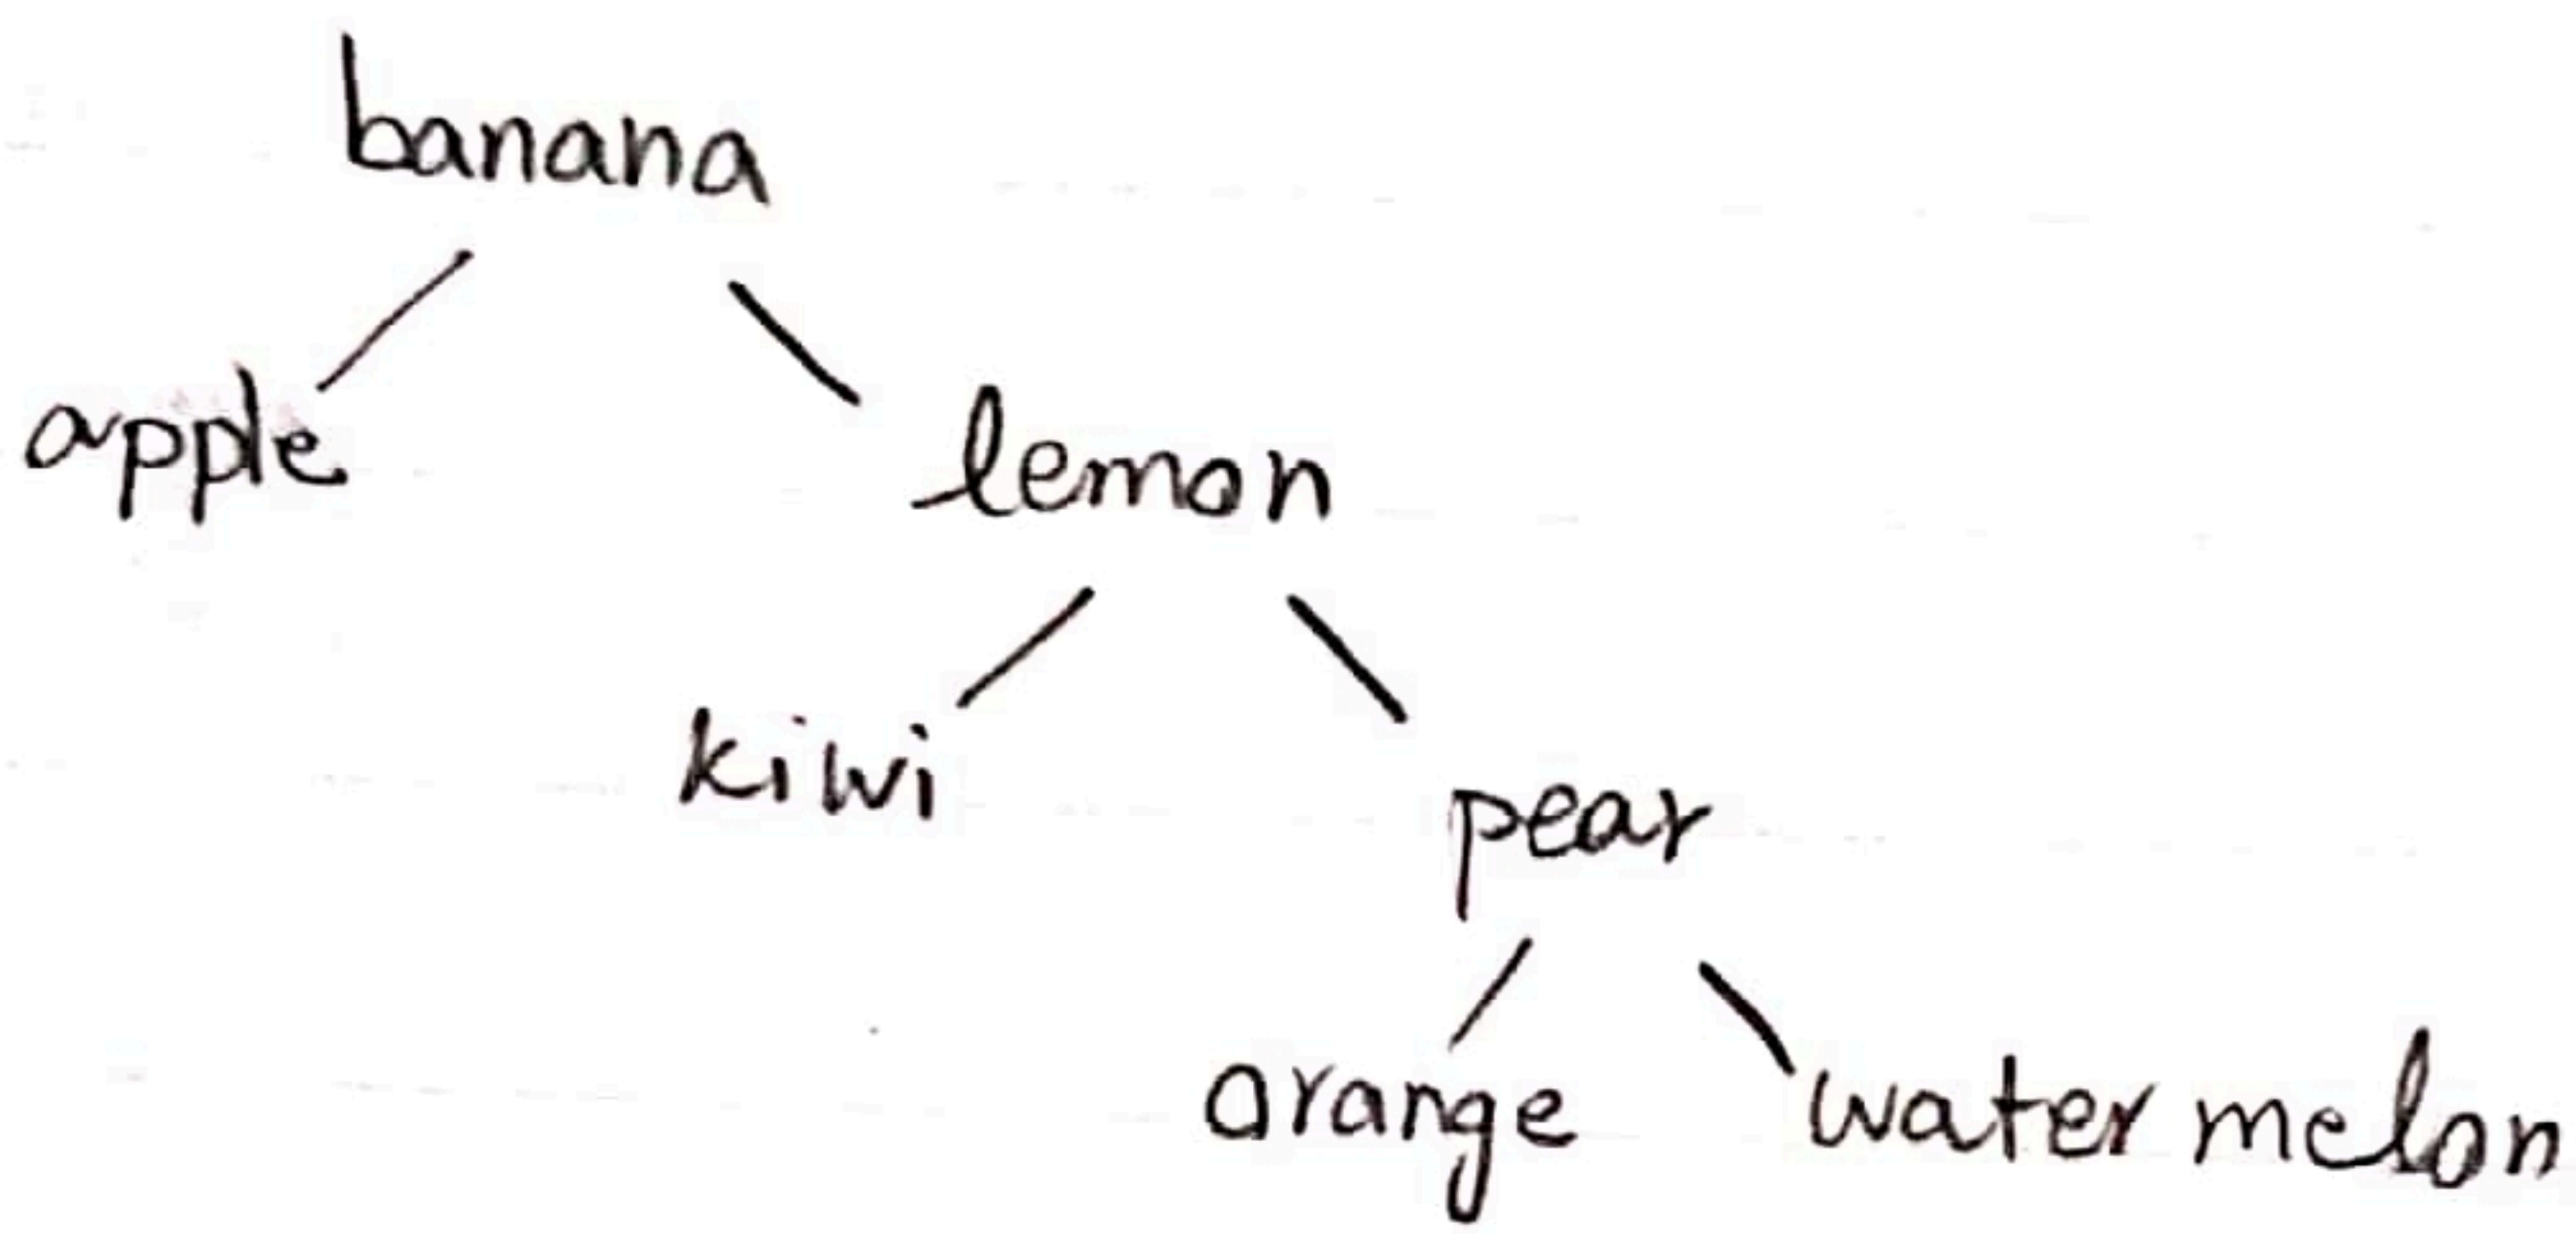 banana
apple
lemon
kiwi
pear
orange
water melon